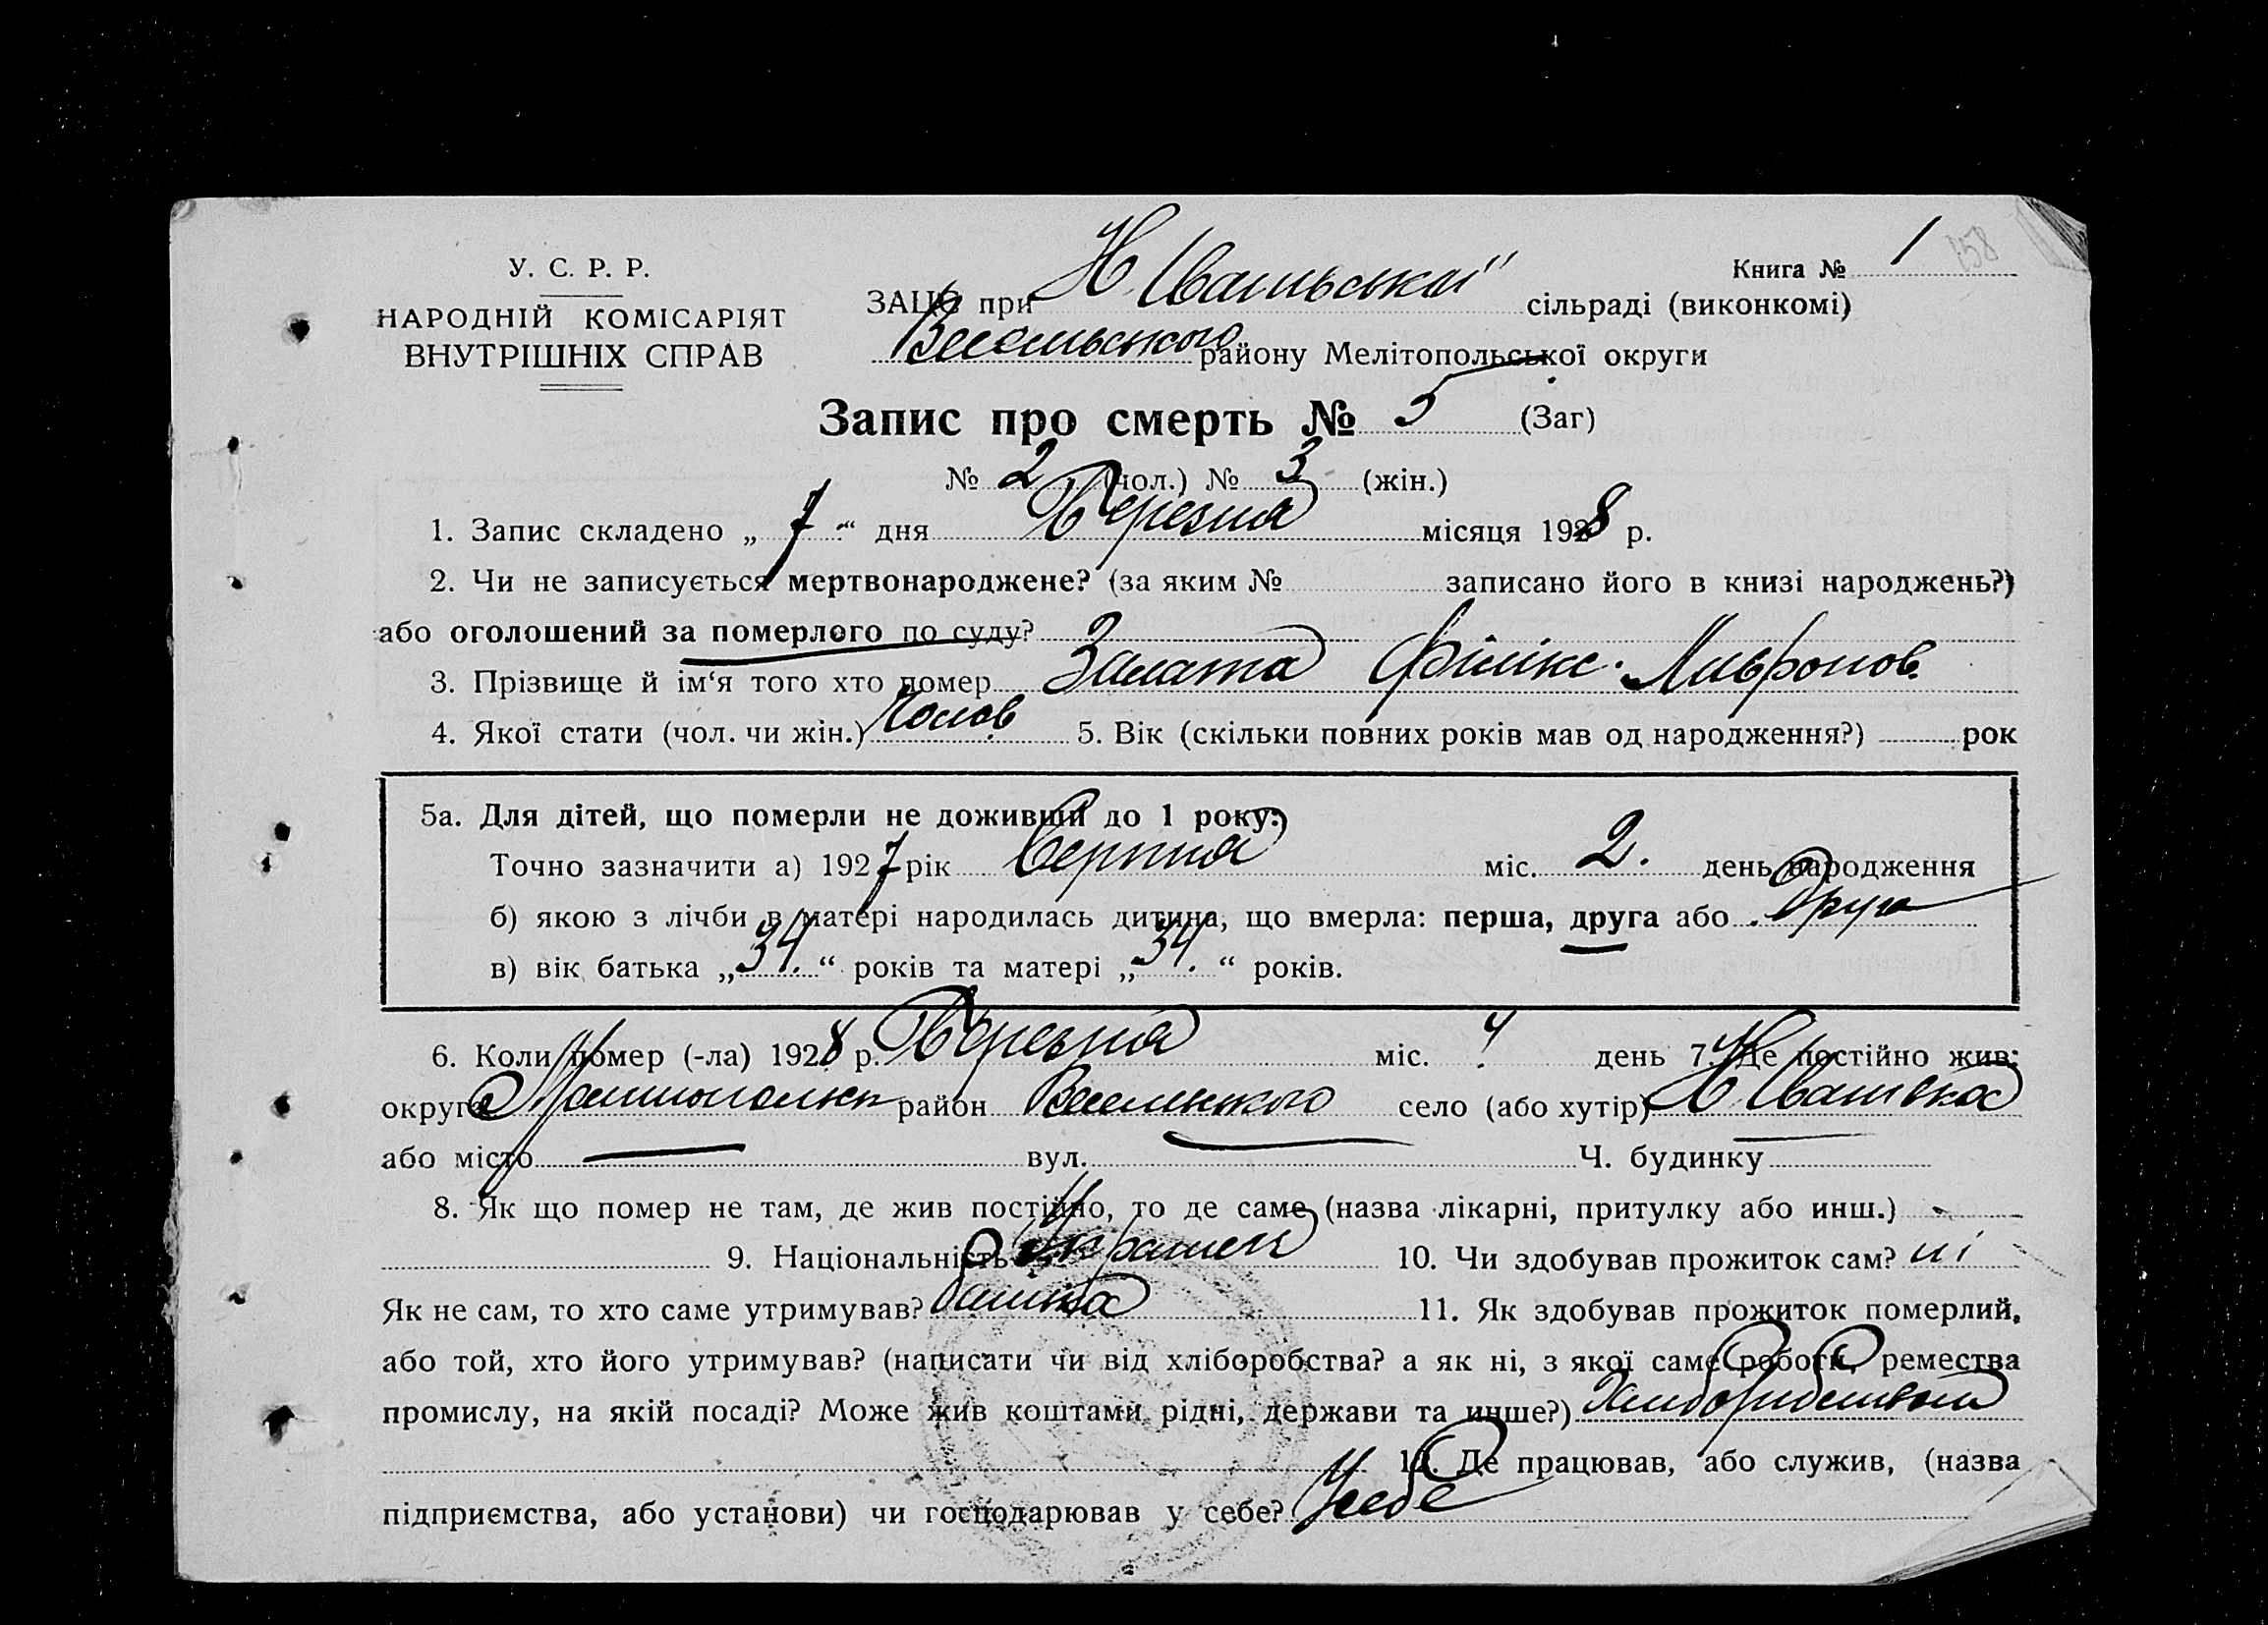 У. С. Р. Р.
НАРОДНІЙ КОМІСАРІЯТ
ВНУТРІШНІХ СПРАВ
Книга № 1
158
ЗАЦС при Н. сільраді (виконкомі)
Весельського району Мелітопольської округи
Запис про смерть № 5 (Заг)
№ 2 (чол.) № 3 (жін.)
1. Запис складено „ 7 “ дня Березня місяця 1928 р.
2. Чи не записується мертвонароджене? (за яким № записано його в книзі народжень?)
або оголошений за померлого по суду?
3. Прізвище й ім‘я того хто помер Філікс
4. Якої стати (чол. чи жін.) Чолов 5. Вік (скільки повних років мав од народження?) рок
5а. Для дітей, що померли не доживши до 1 року:
Точно зазначити а) 1927 рік Серпня міс. 2. день народження
б) якою з лічби в матері народилась дитина, що вмерла: перша, друга або друга
в) вік батька „ 34. “ років та матері „ 34. “ років.
6. Коли помер (-ла) 1928 р. Березня міс. 4 день 7. Де постійно жив:
округа район село (або хутір) Н.
або місто — вул. — Ч. будинку —
8. Як що помер не там, де жив постійно, то де саме (назва лікарні, притулку або инш.)
9. Національність Украинец 10. Чи здобував прожиток сам? ні
Як не сам, то хто саме утримував? батько 11. Як здобував прожиток померлий,
або той, хто його утримував? (написати чи від хліборобства? а як ні, з якої саме роботи, ремества
промислу, на якій посаді? Може жив коштами рідні, держави та инше?)
12. Де працював, або служив, (назва
підприємства, або установи) чи господарював у себе? У себе